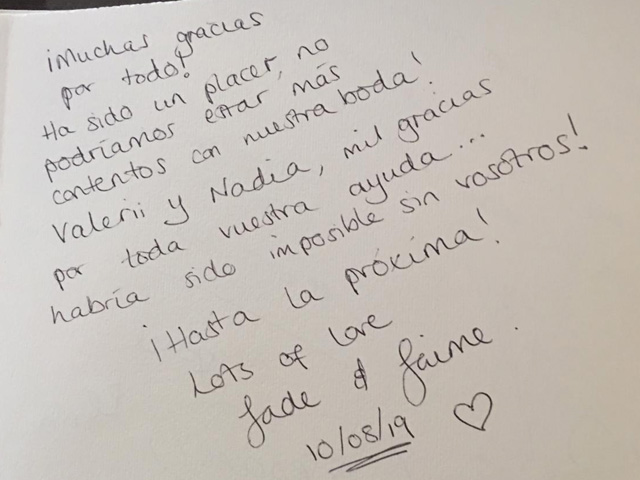 ¡Muchas gracias
por todo!
Ha sido un placer, no
podríamos estar más
contentos con nuestra boda!
Valerii y Nadia, mil gracias
por toda vuestra ayuda...
habría sido imposible sin vosotros!
¡Hasta la próxima!
Lots of love
Jade & Jaime.
10/08/19 ♡